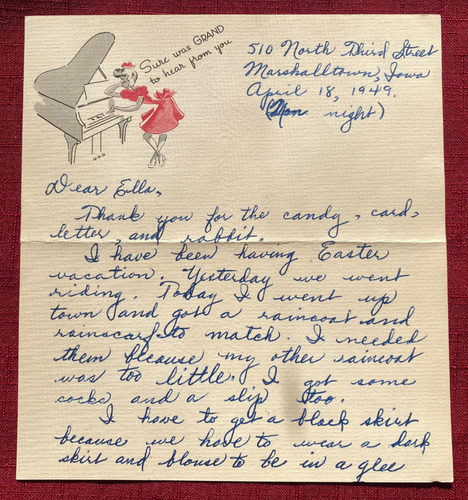 Sure was GRAND
to hear from you
510 North Third Street
Marshalltown, Iowa
April 18, 1949.
(Mon night)
Dear Ella,
Thank you for the candy, card,
letter, and rabbit.
I have been having Easter
vacation. Yesterday we went
riding. Today I went up
town and got a raincoat and
rainscarf to match. I needed
them because my other raincoat
was too little. I got some
socks and a slip too.
I have to get a black skirt
because we have to wear a dark
skirt and blouse to be in a glee